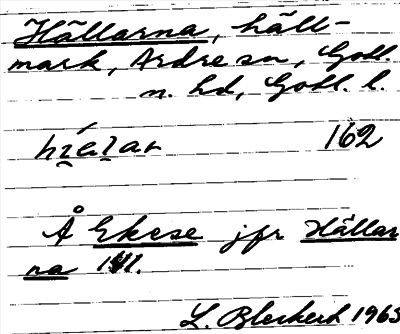 Hällarna, häll-
mark, Ardre sn, Gotl.
n. hd, Gotl. l.
162
Å Ekese jfr Hällar
na
L. Bleckert 1963